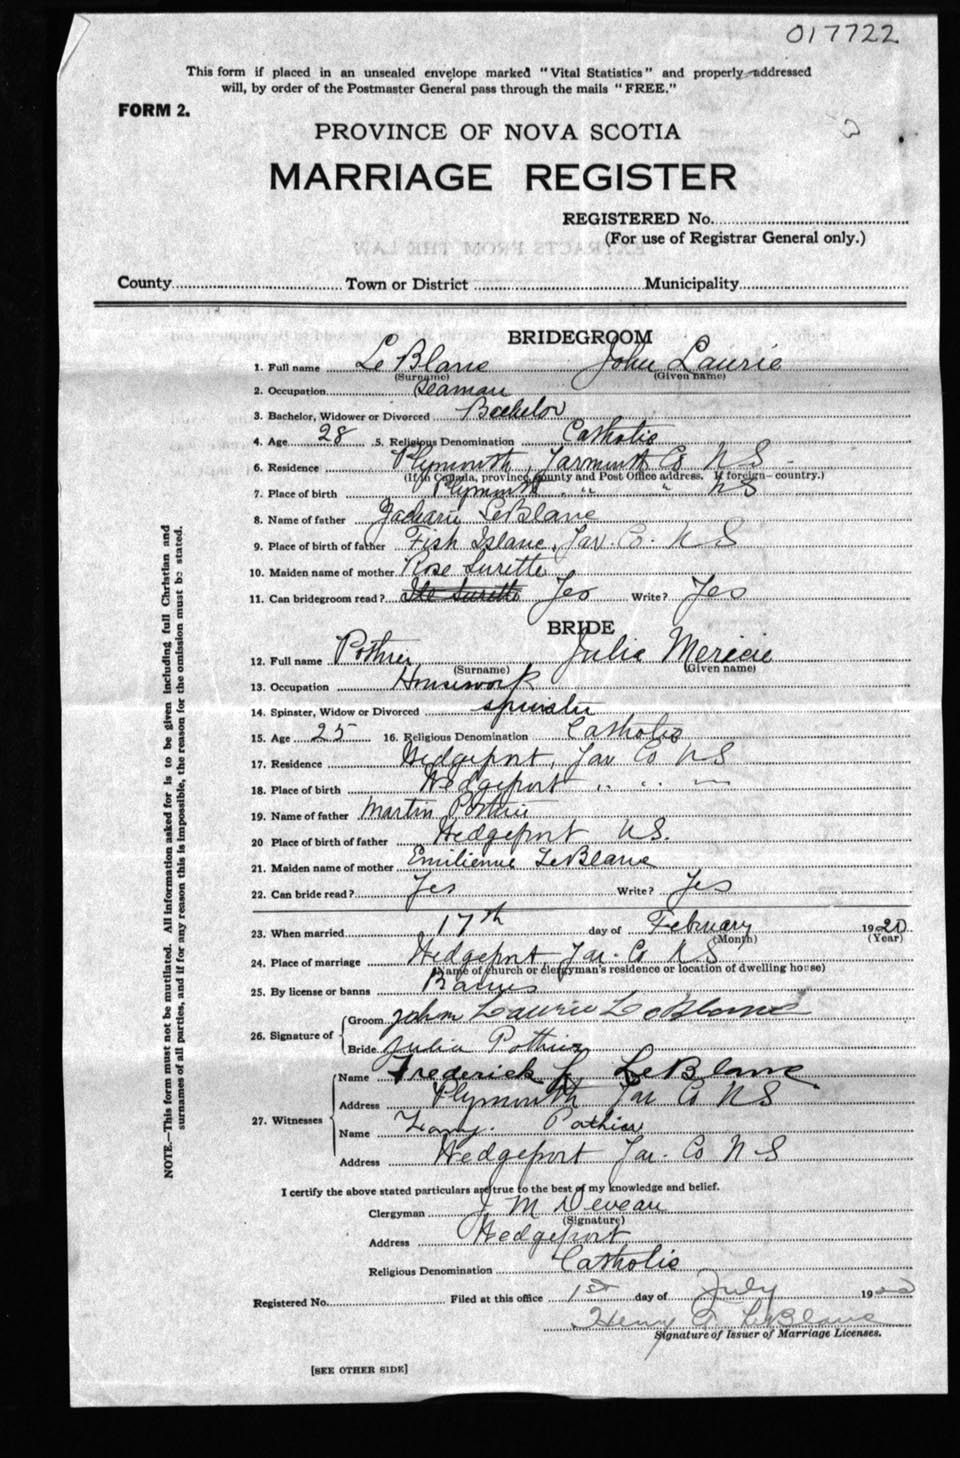 017722
This form if placed in an unsealed envelope marked "Vital Statistics" and properly addressed
will, by order of the Postmaster General pass through the mails "FREE."
FORM 2.
PROVINCE OF NOVA SCOTIA
MARRIAGE REGISTER
REGISTERED No.
(For use of Registrar General only.)
County Town or District Municipality
BRIDEGROOM
1. Full name LeBlanc John Laurie
(Surname) (Given name)
2. Occupation Seaman
3. Bachelor, Widower or Divorced Bachelor
4. Age 28 5. Religious Denomination Catholic
6. Residence Plymouth, Yarmouth Co N S
(If in Canada, province, county and Post Office address. If foreign—country.)
7. Place of birth Plymouth " " NS
8. Name of father Zacharie LeBlanc
9. Place of birth of father Fish Island, Yar. Co. N S
10. Maiden name of mother Rose Surette
11. Can bridegroom read? Yes Write? Yes
BRIDE
12. Full name Pothier Julie Mericie
(Surname) (Given name)
13. Occupation Housework
14. Spinster, Widow or Divorced spinster
15. Age 25 16. Religious Denomination Catholic
17. Residence Wedgeport, Yar Co N S
18. Place of birth Wedgeport " "
19. Name of father Martin Pothier
20 Place of birth of father Wedgeport N.S.
21. Maiden name of mother Emilienne LeBlanc
22. Can bride read? Yes Write? Yes
23. When married 17th day of February 1920
(Month) (Year)
24. Place of marriage Wedgeport Yar. Co N S
(Name of church or clergyman's residence or location of dwelling house)
25. By license or banns Banns
26. Signature of Groom John Laurie LeBlanc
Bride Julia Pothier
27. Witnesses Name Frederick L LeBlanc
Address Plymouth Yar Co N S
Name Pothier
Address Wedgeport Yar. Co N S
I certify the above stated particulars are true to the best of my knowledge and belief.
Clergyman J M Deveau
(Signature)
Address Wedgeport
Religious Denomination Catholic
Registered No. Filed at this office 1st day of July 19
Henry T LeBlanc
Signature of Issuer of Marriage Licenses.
[SEE OTHER SIDE]
NOTE.—This form must not be mutilated. All information asked for is to be given including full Christian and
surnames of all parties, and if for any reason this is impossible, the reason for the omission must be stated.